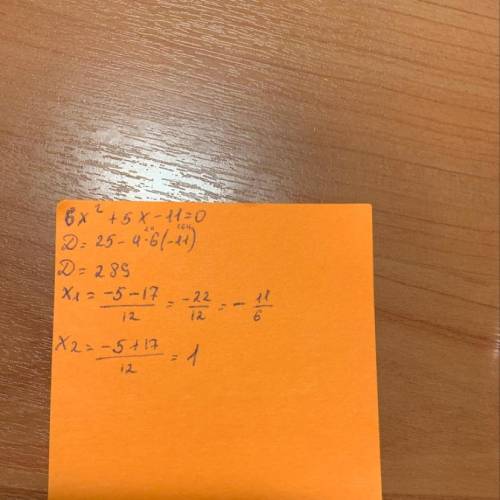 6x² + 5x - 11 = 0
D = 25 - 4·6(-11)
D = 289
x1 = -5-17/12 = -22/12 = - 11/6
x2 = -5+17/12 = 1